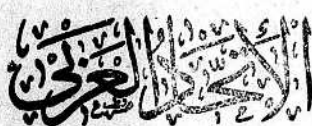 الاتحاد العربي